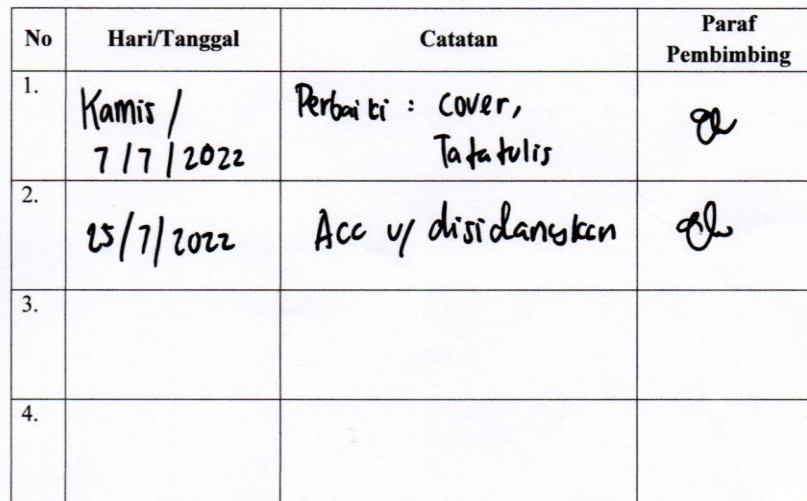 No Hari/Tanggal Catatan Paraf
Pembimbing
1.
Kamis / Perbaiki : cover,
7/7/2022 Tata tulis
2.
25/7/2022 Acc u/ disidangkan
3.
4.